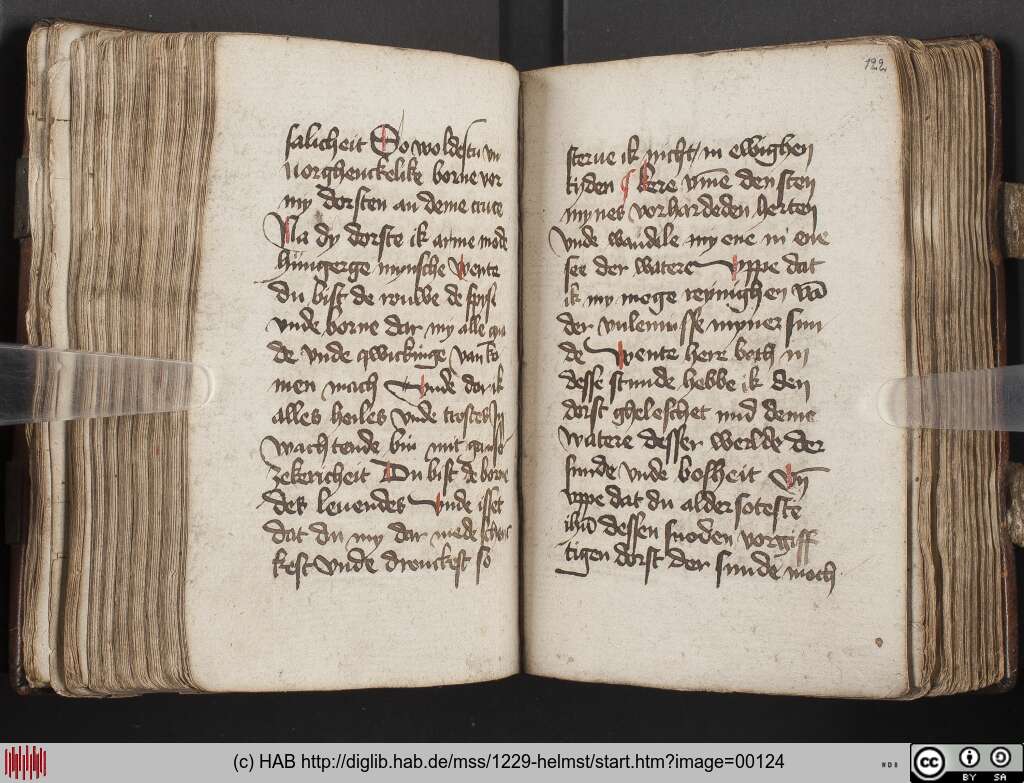 salicheit So woldestu vn
vorghenckelike borne vor
my dorsten an deme cruce
Na dy dorste ik arme mode
hungerge mynsche Wente
du bist de rouwe de spysi
vnde borne dar my alle gna
de vnde qwickinge van ko
men mach Vnde dar ik
alles heiles vnde trostes
wachtende bin mit ganser
zekericheit Du bist de borne
des leuendes Vnde isset
dat du my dar mede schen
kest vnde drenckest so
122
sterue ik nicht in ewighen
tyden ¶ kere vmme den sten
mynes vorhardeden herten
vnde wandele my ene in ene
see der watere vppe dat
ik my moge reynighen van
der vulenisse myner sun
de Wente here beth in
desse stunde hebbe ik den
dorst gheleschet mid deme
watere desser werlde der
sunde vnde bosheit Vn
vppe dat du alder soteste
ihu dessen snoden vorgiff
tigen dorst der sunde moch
(c) HAB http://diglib.hab.de/mss/1229-helmst/start.htm?image=00124
WDB
CC BY SA